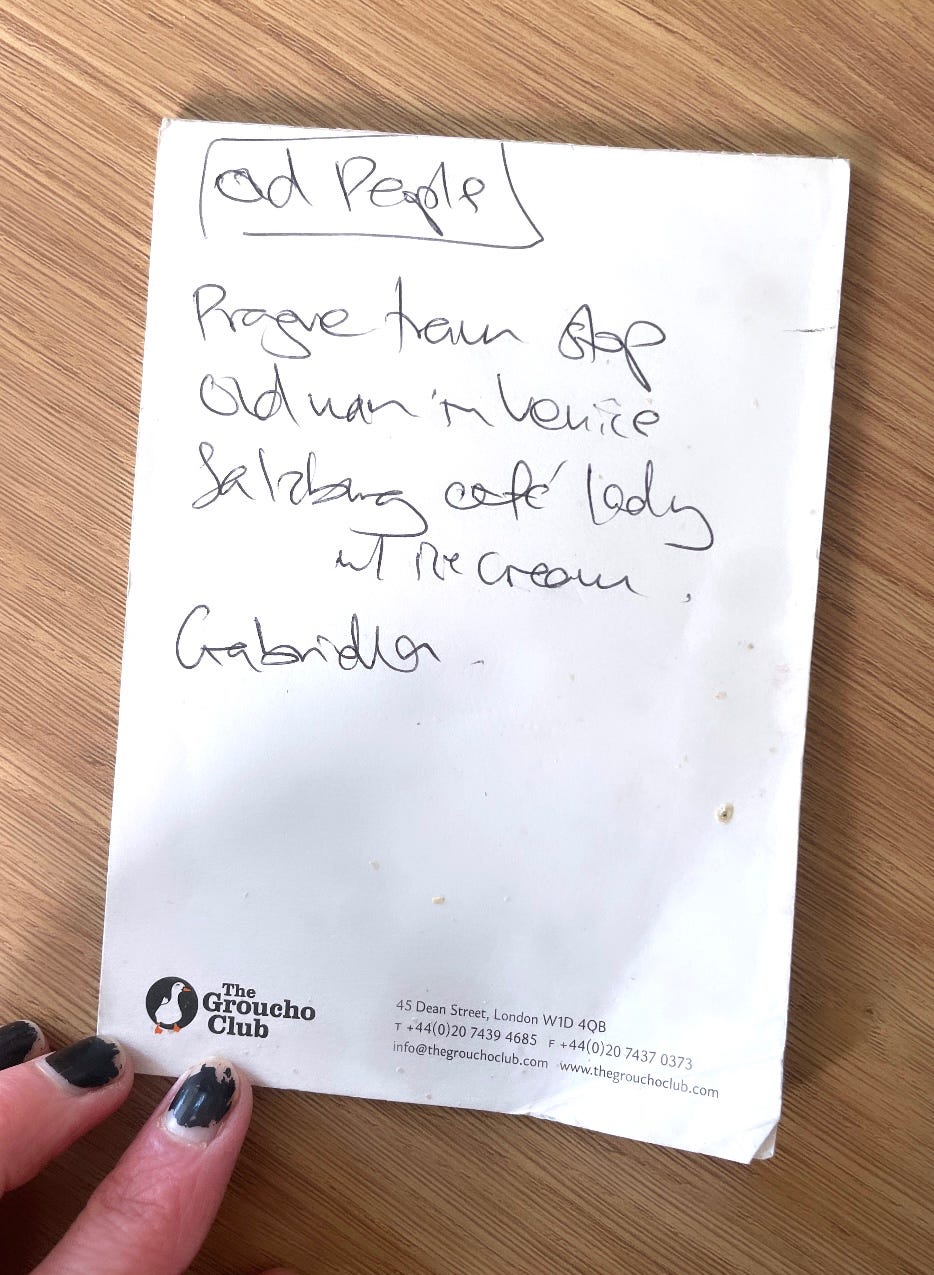 ad People
Prague tram stop
Old man in Venice
Salzburg café lady
w/ ice cream.
Gabriella.
The
Groucho
Club
45 Dean Street, London W1D 4QB
T +44(0)20 7439 4685 F +44(0)20 7437 0373
info@thegrouchoclub.com www.thegrouchoclub.com